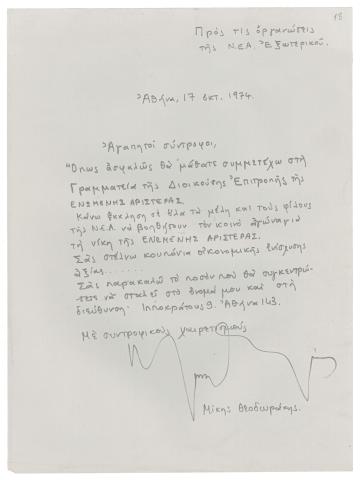 18
Πρὸς τὶς ὀργανώσεις
τῆς Ν.Ε.Α. Ἐξωτερικοῦ.
Ἀθήνα, 17 Οκτ. 1974.
Ἀγαπητοὶ σύντροφοι,
Ὅπως ἀσφαλῶς θὰ μάθατε συμμετέχω στὴ
Γραμματεία τῆς Διοικούσης Ἐπιτροπῆς τῆς
ΕΝΩΜΕΝΗΣ ΑΡΙΣΤΕΡΑΣ.
Κάνω ἔκκληση σὲ ὅλα τὰ μέλη καὶ τοὺς φίλους
τῆς Ν.Ε.Α. νὰ βοηθήσουν τὸν κοινὸ ἀγώνα γιὰ
τὴ νίκη τῆς ΕΝΩΜΕΝΗΣ ΑΡΙΣΤΕΡΑΣ.
Σᾶς στέλνω κουπόνια οἰκονομικῆς ἐνίσχυσης
ἀξίας.......
Σᾶς παρακαλῶ τὸ ποσὸν ποὺ θὰ συγκεντρώ-
σετε νὰ σταλεῖ στὸ ὄνομά μου καὶ στὴ
διεύθυνση: Ἱπποκράτους 9. Ἀθήνα 143.
Μὲ συντροφικοὺς χαιρετισμοὺς
Μίκης Θεοδωράκης.